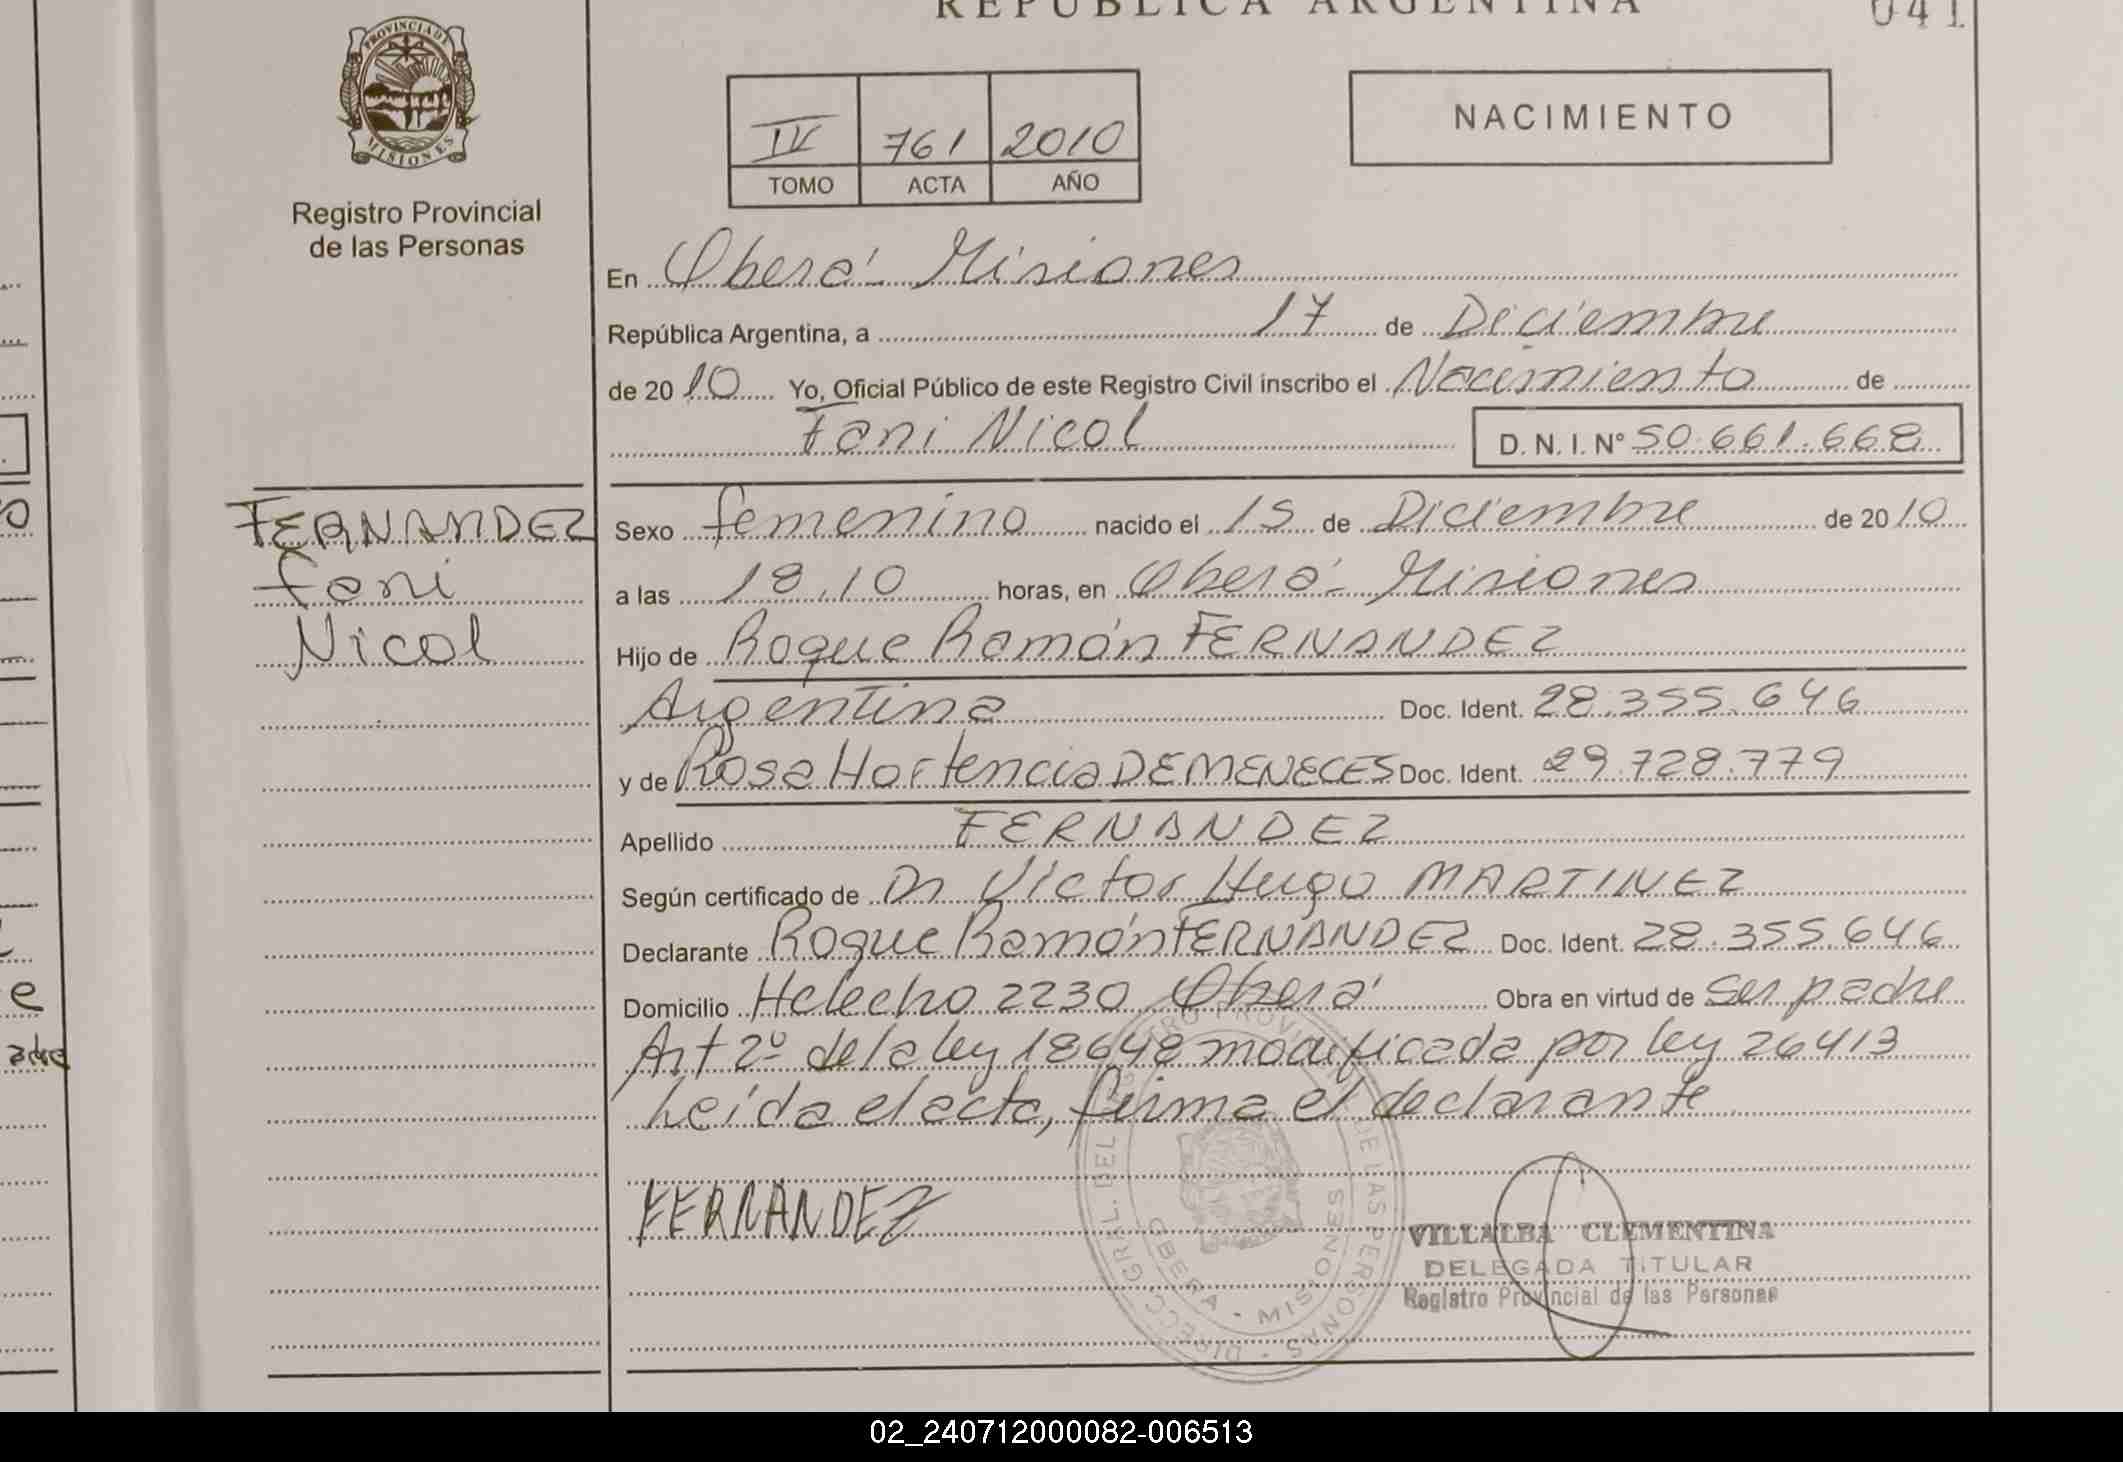 REPUBLICA ARGENTINA
041
PROVINCIA DE
MISIONES
Registro Provincial
de las Personas
IV 761 2010
TOMO ACTA AÑO
NACIMIENTO
En Oberá - Misiones
República Argentina, a 17 de Diciembre
de 2010 Yo, Oficial Público de este Registro Civil inscribo el Nacimiento de
Fani Nicol D. N. I. Nº 50.661.668
FERNANDEZ
Fani
Nicol
Sexo femenino nacido el 15 de Diciembre de 2010
a las 18,10 horas, en Oberá - Misiones
Hijo de Roque Ramón FERNANDEZ
Argentina Doc. Ident. 28.355.646
y de Rosa Hortencia DEMENECES Doc. Ident. 29.728.779
Apellido FERNANDEZ
Según certificado de Dr Victor Hugo MARTINEZ
Declarante Roque Ramón FERNANDEZ Doc. Ident. 28.355.646
Domicilio Helecho 2230 Oberá Obra en virtud de Ser padre
Art 2º de la ley 18648 modificada por ley 26413
Leída el acta, firma el declarante
FERNANDEZ
DIRECC. GRAL. DEL REGISTRO PROVINCIAL DE LAS PERSONAS
OBERA - MISIONES
VILLALBA CLEMENTINA
DELEGADA TITULAR
Registro Provincial de las Personas
02_240712000082-006513